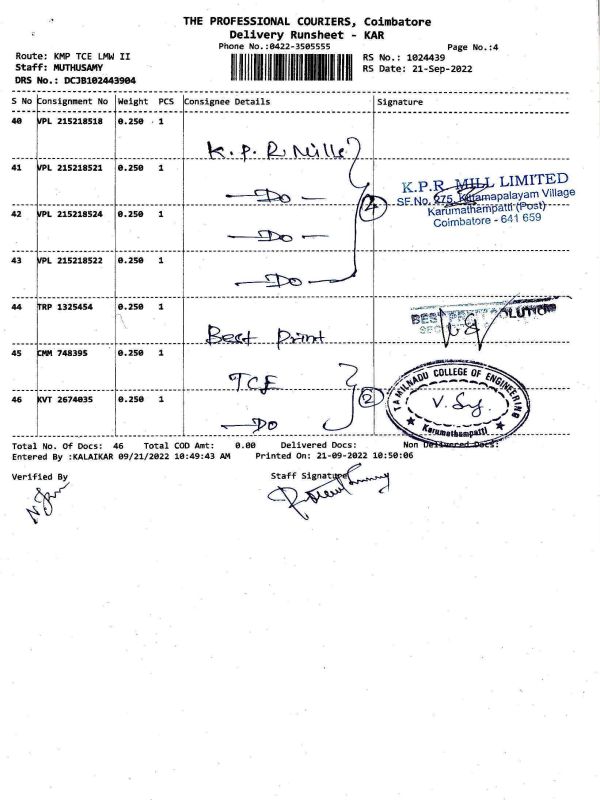 THE PROFESSIONAL COURIERS, Coimbatore
Delivery Runsheet - KAR
Phone No.:0422-3505555
Page No.:4
Route: KMP TCE LMW II
RS No.: 1024439
Staff: MUTHUSAMY
RS Date: 21-Sep-2022
DRS No.: DCJB102443904
S No Consignment No Weight PCS Consignee Details Signature
40 VPL 215218518 0.250 1
K.P.R Mills
41 VPL 215218521 0.250 1
K.P.R. MILL LIMITED
Do
SF No. 275, Kittamapalayam Village
42 VPL 215218524 0.250 1
4
Karumathampatti (Post)
Coimbatore - 641 659
Do
43 VPL 215218522 0.250 1
Do
44 TRP 1325454 0.250 1
BEST PRINT SOLUTION
Best Print
45 CMM 748395 0.250 1
TCE
TAMILNADU COLLEGE OF ENGINEERING
46 KVT 2674035 0.250 1
2
V. Sy
Do
Karumathampatti
Total No. Of Docs: 46 Total COD Amt: 0.00 Delivered Docs: Non Delivered Docs:
Entered By :KALAIKAR 09/21/2022 10:49:43 AM Printed On: 21-09-2022 10:50:06
Verified By
Staff Signature